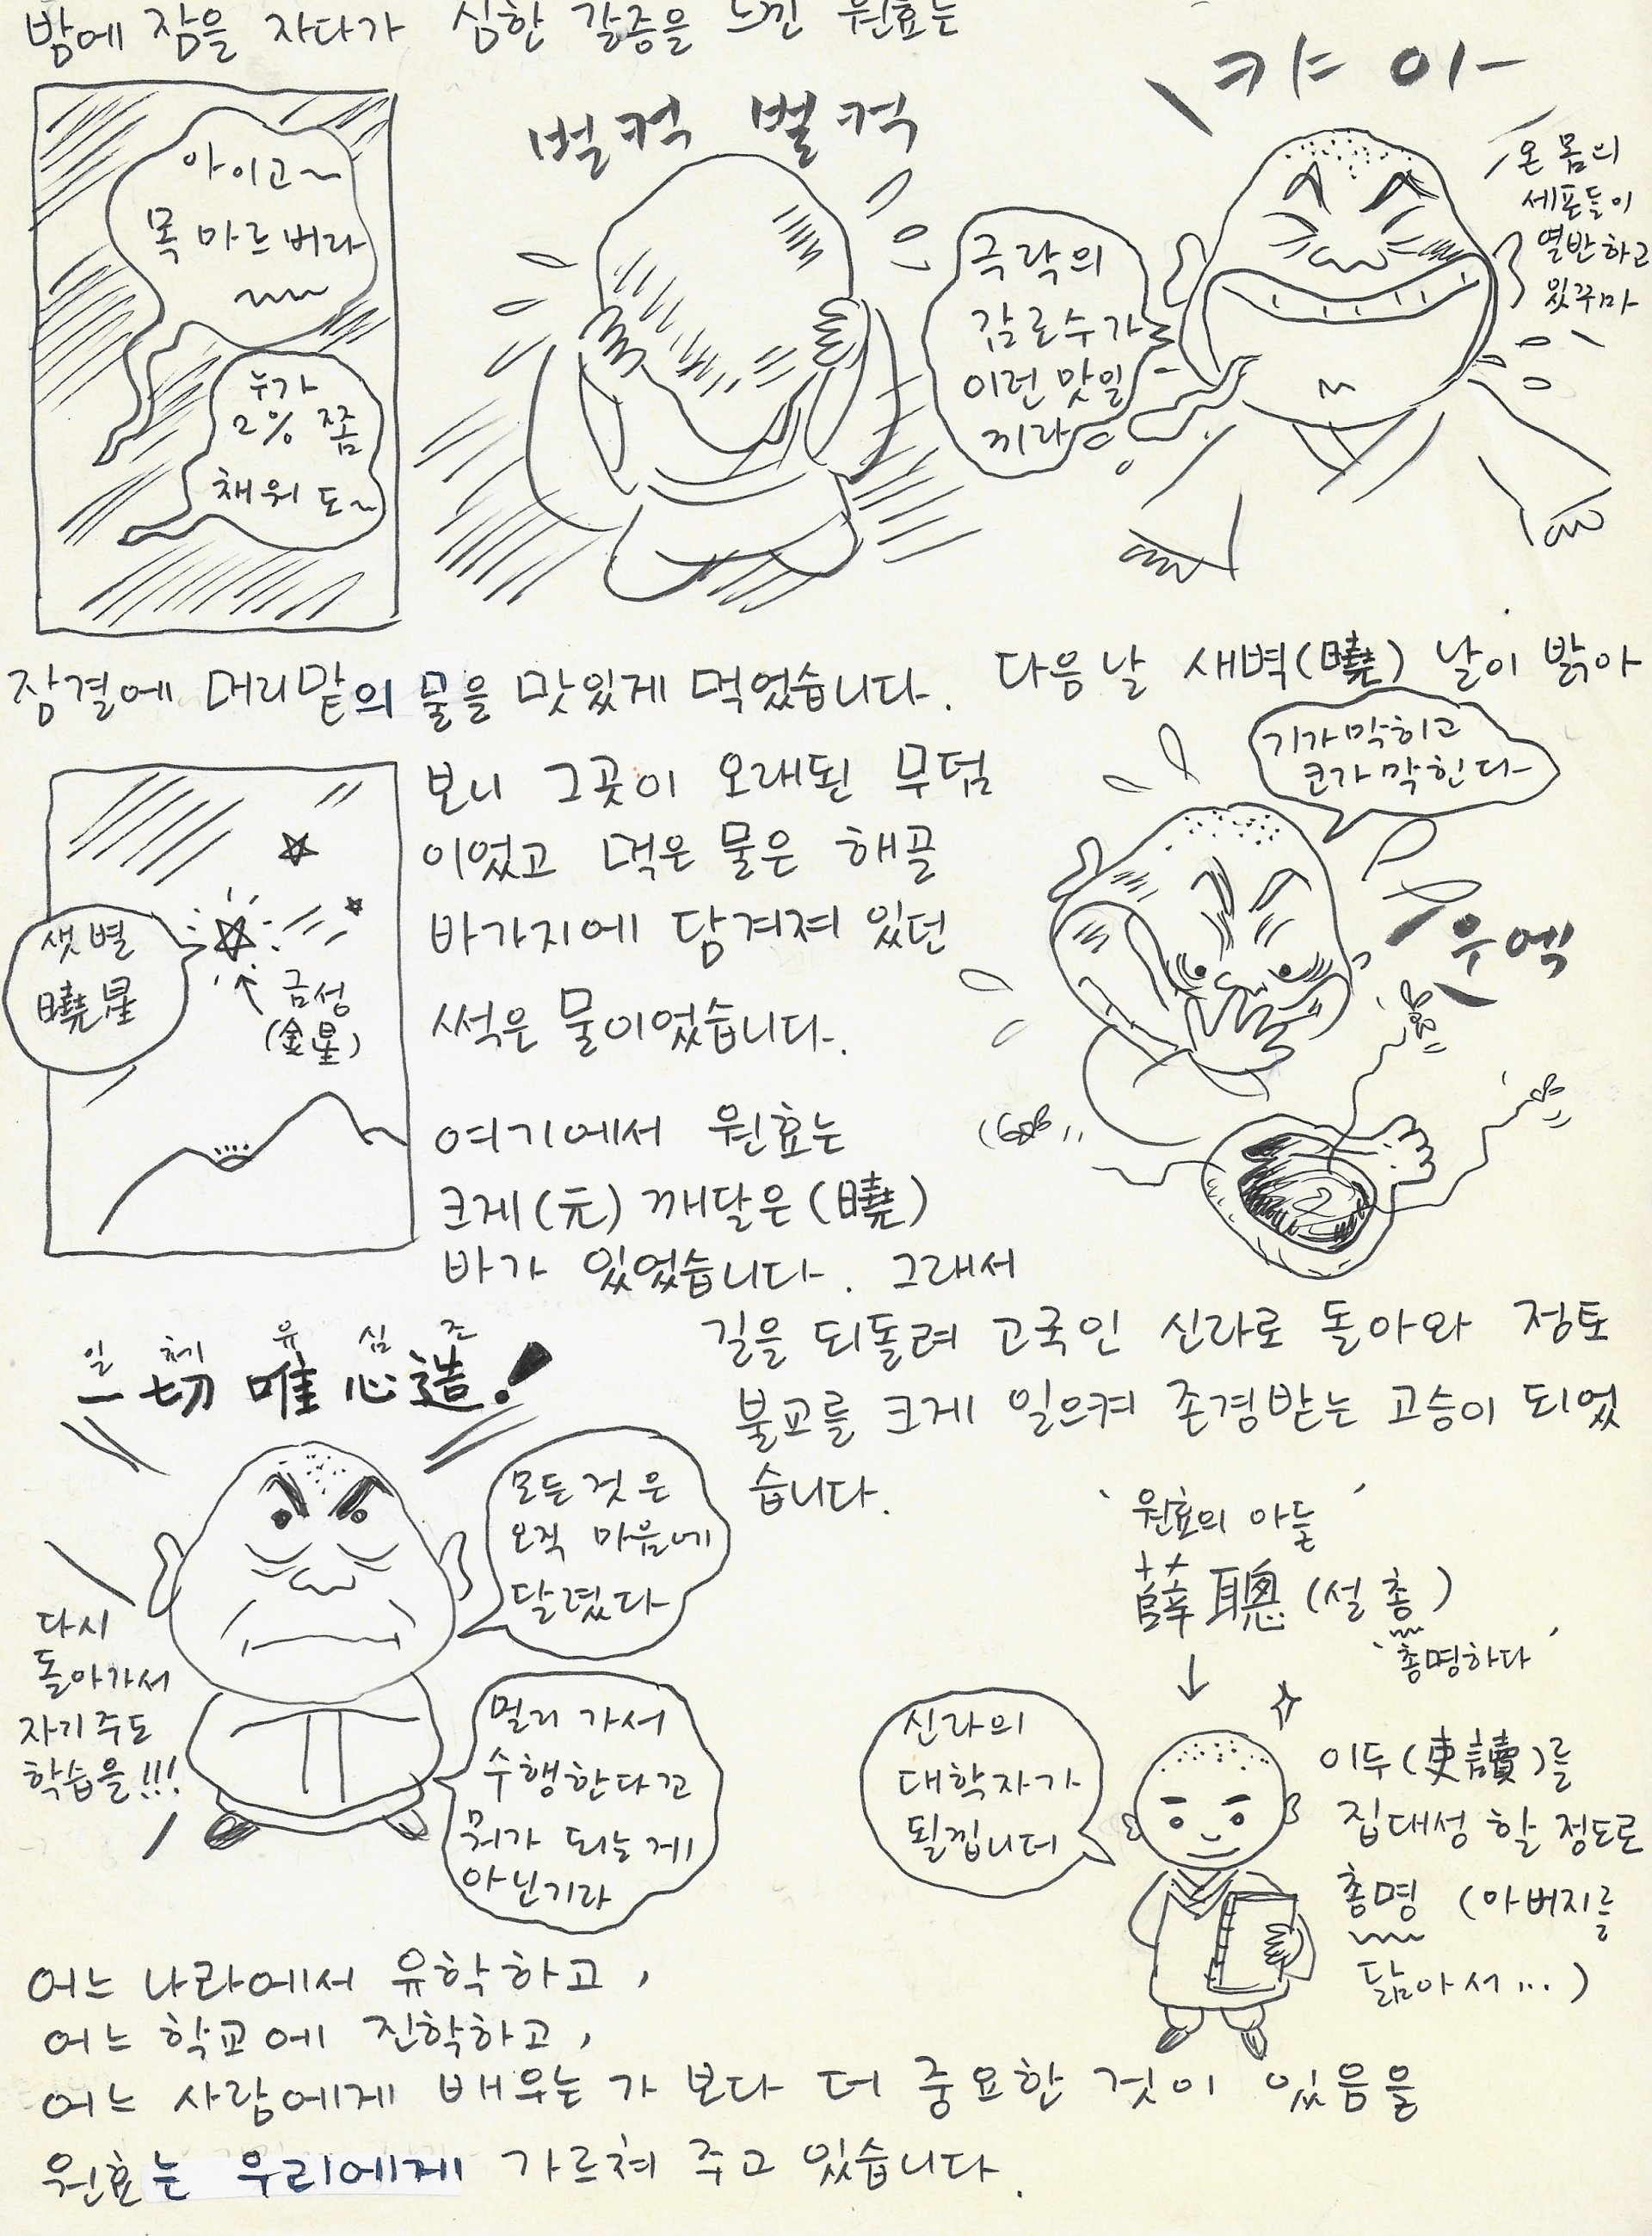 밤에 잠을 자다가 심한 갈증을 느낀 원효는
아이고~
목 마르버라
누가
2% 쫌
채워 도~
벌컥 벌컥
캬 아-
극락의
감로수가
이런 맛일
끼라
온 몸의
세포들이
열반하고
있꾸마
잠결에 머리맡의 물을 맛있게 먹었습니다. 다음 날 새벽(曉) 날이 밝아
보니 그곳이 오래된 무덤
이었고 먹은 물은 해골
바가지에 담겨져 있던
썩은 물이었습니다.
샛별
曉星
금성
(金星)
기가 막히고
코가 막힌다-
우엑
여기에서 원효는
크게(元) 깨달은(曉)
바가 있었습니다. 그래서
길을 되돌려 고국인 신라로 돌아와 정토
불교를 크게 일으켜 존경받는 고승이 되었
습니다.
일 체 유 심 조
一切 唯心造!
모든것은
오직 마음에
달렸다
다시
돌아가서
자기주도
학습을!!!
멀리 가서
수행한다꼬
뭐가 되는게
아닌기라
'원효의 아들'
薛聰 (설총)
'총명하다'
신라의
대학자가
될낍니더
이두(史讀)를
집대성 할 정도로
총명 (아버지를
닮아서...)
어느 나라에서 유학하고,
어느 학교에 진학하고,
어느 사람에게 배우는 가 보다 더 중요한 것이 있음을
원효는 우리에게 가르쳐 주고 있습니다.